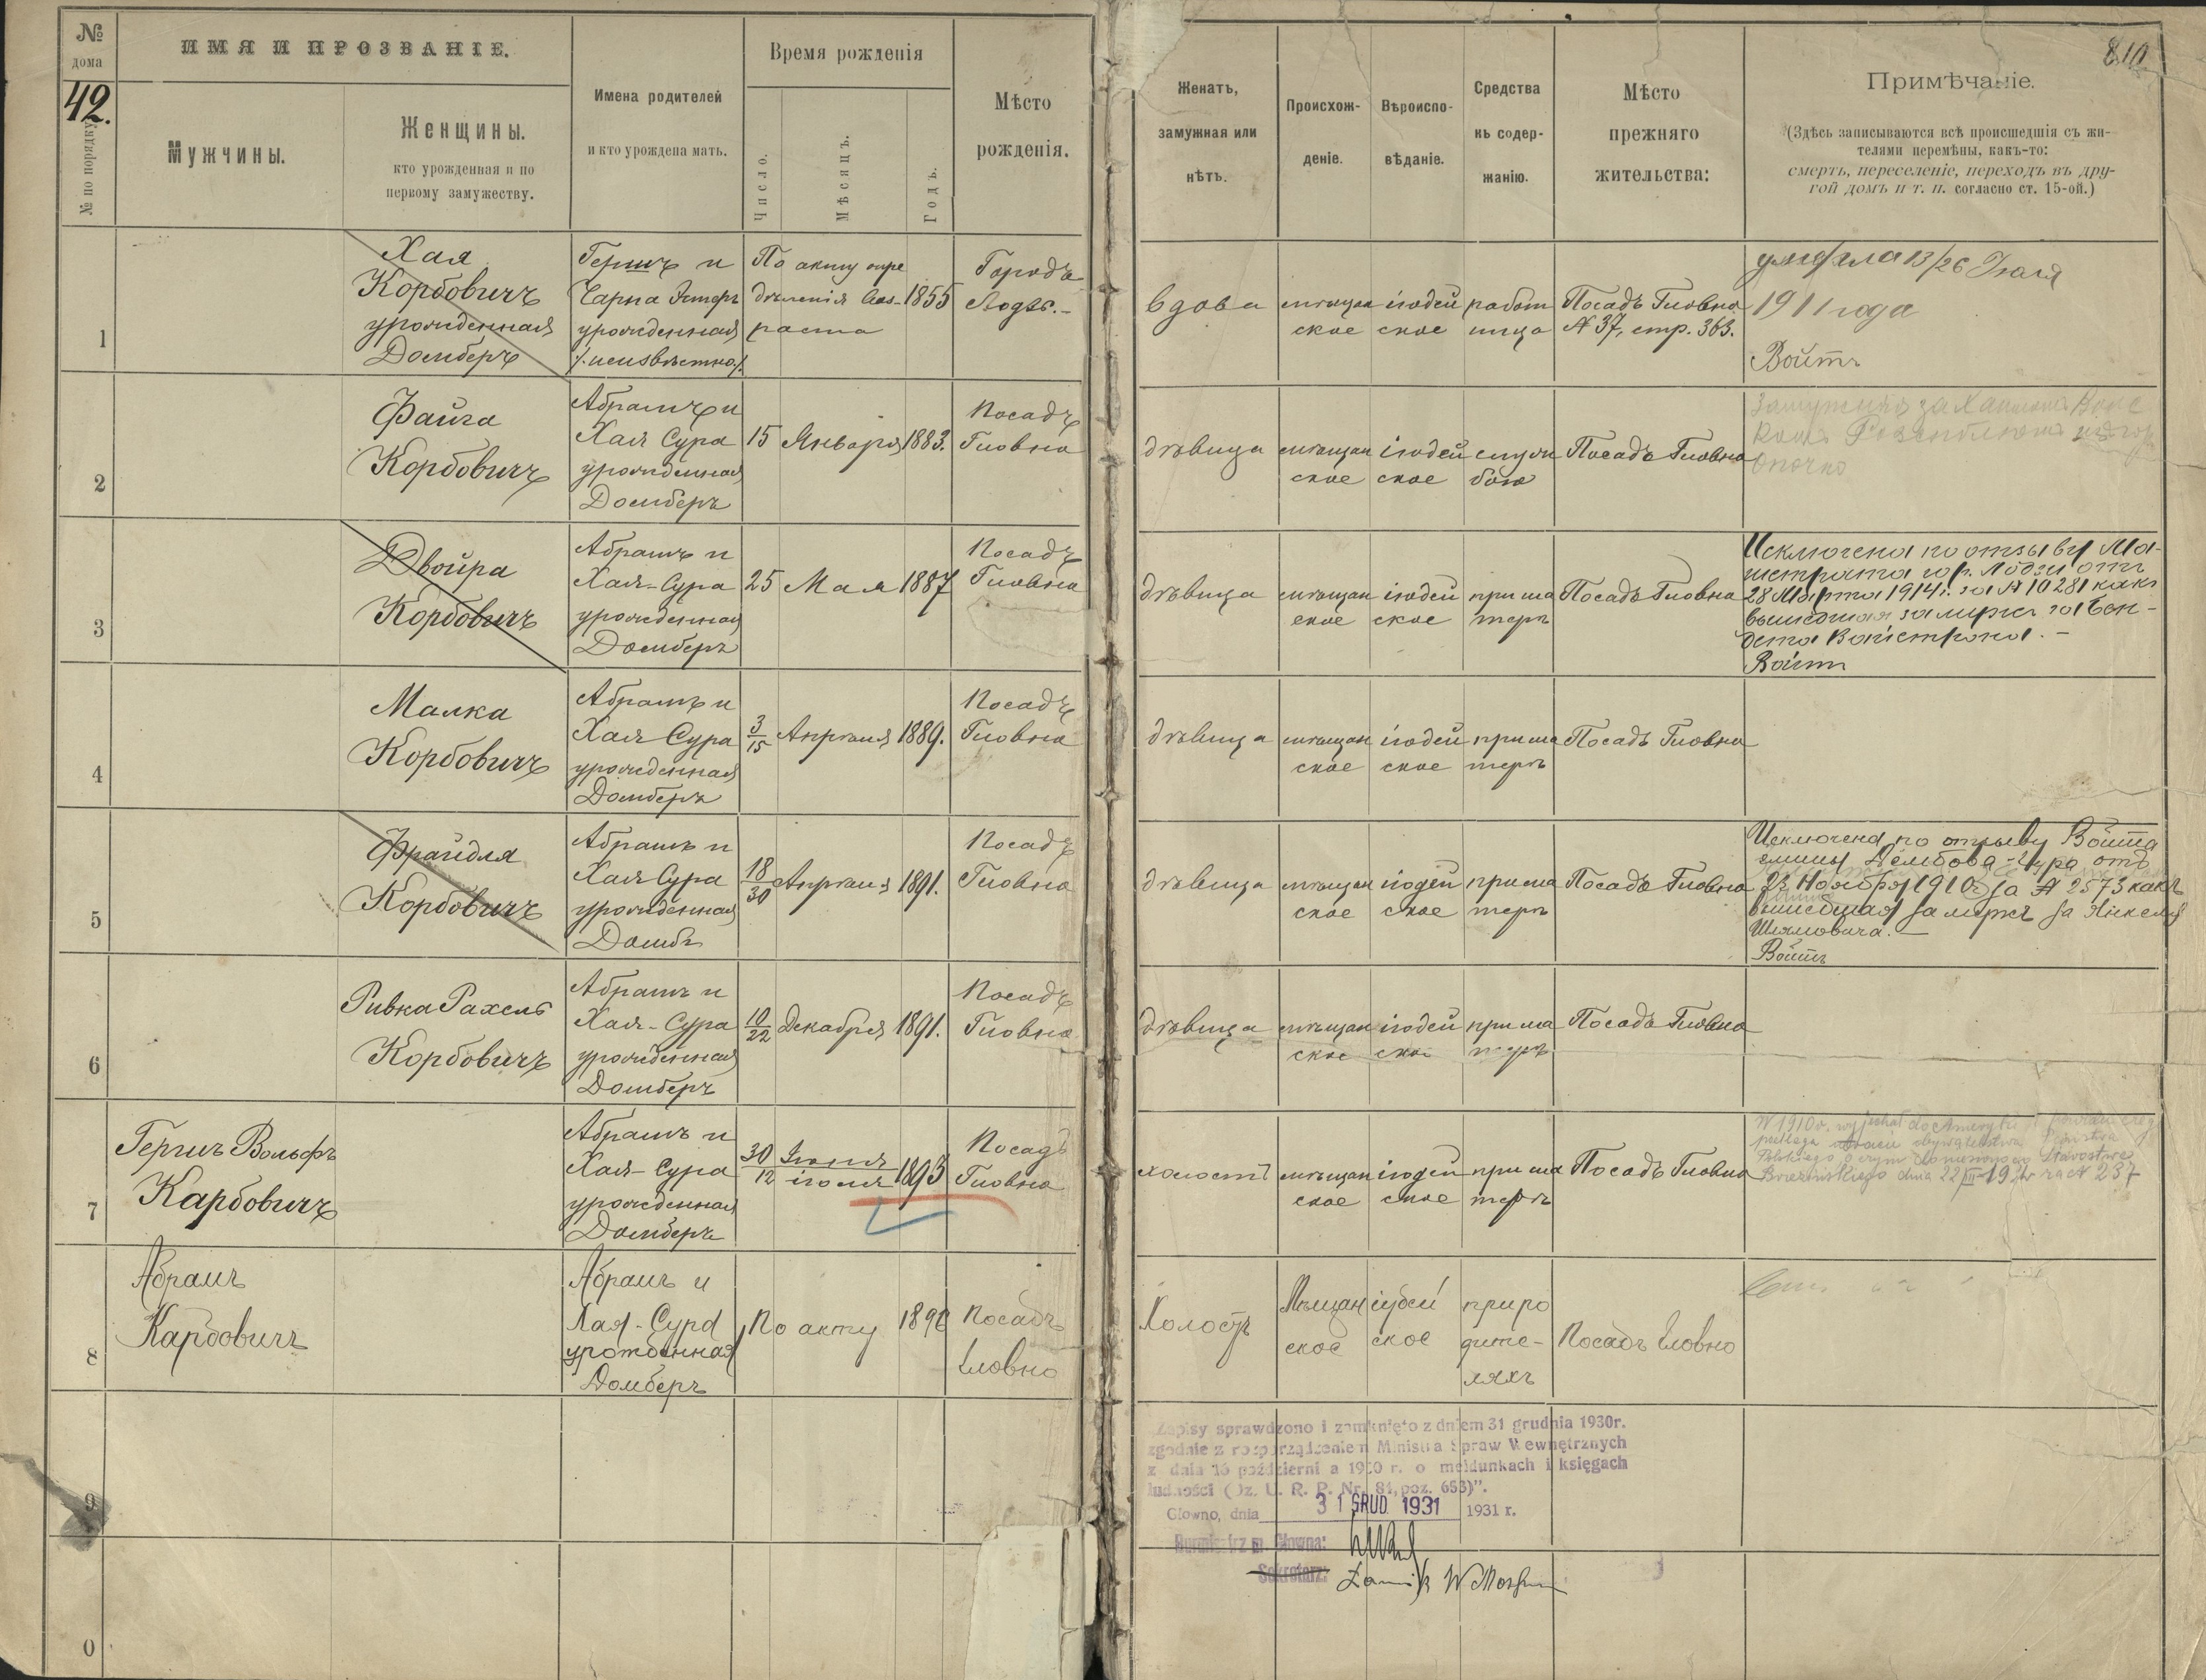 № дома
42.
№ по порядку
ИМЯ И ПРОЗВАНІЕ.
Мужчины.
Женщины.
кто урожденная и по
первому замужеству.
Имена родителей
и кто урождена мать.
Время рожденія
Число.
Мѣсяцъ.
Годъ.
Мѣсто
рожденія.
Женатъ,
замужная или
нѣтъ.
Происхож-
деніе.
Вѣроиспо-
вѣданіе.
Средства
къ содер-
жанію.
Мѣсто
прежняго
жительства:
810
Примѣчаніе.
(Здѣсь записываются всѣ происшедшія съ жи-
телями перемѣны, какъ-то:
смерть, переселеніе, переходъ въ дру-
гой домъ и т. п. согласно ст. 15-ой.)
1
Хая
Корбовичъ
урожденная
Домберъ
Гершъ и
Чарна Эстеръ
урожденная
/.неизвѣстно./
По акту опре
дѣленія воз-
раста
1855
Городъ
Лодзь.-
вдова
мѣщан
ское
іюдей
ское
работ
ница
Посадъ Гловно
№ 37, стр. 363.
умерла 13/26 Іюля
1911 года
Войтъ
2
Файга
Корбовичъ
Абрамъ и
Хая Сура
урожденная
Домберъ
15 Января 1883.
Посадъ
Гловно
дѣвица
мѣщан
ское
іюдей
ское
служ
бою
Посадъ Гловно
замужняя за
Опочно
3
Двойра
Корбовичъ
Абрамъ и
Хая-Сура
урожденная
Домберъ
25 Мая 1887
Посадъ
Гловно
дѣвица
мѣщан
ское
іюдей
ское
при ма
тери
Посадъ Гловно
Исключена по отзыву Ма-
гистрата гор. Лодзи отъ
28 Марта 1914 г. за № 10281 какъ
вышедшая замужъ за Бен-
Войтъ
4
Малка
Корбовичъ
Абрамъ и
Хая Сура
урожденная
Домберъ
3/15 Апрѣля 1889.
Посадъ
Гловно
дѣвица
мѣщан
ское
іюдей
ское
при ма
тери
Посадъ Гловно
5
Фрайдля
Корбовичъ
Абрамъ и
Хая Сура
урожденная
Домбъ
18/30 Апрѣля 1891.
Посадъ
Гловно
дѣвица
мѣщан
ское
іюдей
ское
при ма
тери
Посадъ Гловно
Исключена по отзыву Войта
гмины Дембова-Гура отъ
23 Ноября 1910 г. за № 2573 какъ
вышедшая замужъ за Янкеля
Шлямовича.
Войтъ
6
Ривка Рахель
Корбовичъ
Абрамъ и
Хая-Сура
урожденная
Домберъ
10/22 Декабря 1891.
Посадъ
Гловно
дѣвица
мѣщан
ское
іюдей
ское
при ма
тери
Посадъ Гловно
7
Гершъ Вольфъ
Карбовичъ
Абрамъ и
Хая-Сура
урожденная
Домберъ
30/12 Іюня/іюля 1893
Посадъ
Гловно
холостъ
мѣщан
ское
іюдей
ское
при ма
тери
Посадъ Гловно
W 1910 r. wyjechał do Ameryki
podlega utracie obywatelstwa Państwa
Polskiego o czym doniesiono do Starostwa
Brzezińskiego dnia 22/III-192 r. za № 237
8
Абрамъ
Карбовичъ
Абрамъ и
Хая-Сура
урожденная
Домберъ
По акту
Посадъ
Гловно
Холостъ
Мѣщан
ское
іудей
ское
при ро
дите-
ляхъ
Посадъ Гловно
9
0
Zapisy sprawdzono i zamknięto z dniem 31 grudnia 1930r.
zgodnie z rozporządzeniem Ministra Spraw Wewnętrznych
z dnia 16 październi a 1930 r. o meldunkach i księgach
ludności (Dz. U. R. P. Nr. 84, poz. 653)".
Głowno, dnia 31 GRUD. 1931 1931 r.
Burmistrz m. Głowna:
Sekretarz: